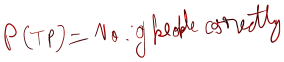 P(TP) = No. of people correctly